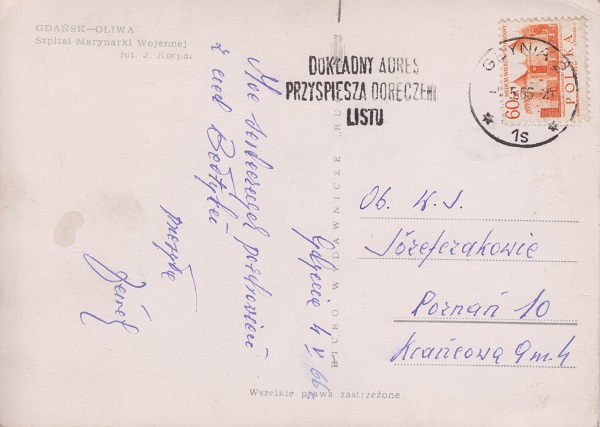 GDAŃSK—OLIWA
Szpital Marynarki Wojennej
fot. J. Korpal
DOKŁADNY ADRES
PRZYSPIESZA DORĘCZENIE
LISTU
GDYNIA
1s
60
POLSKA
Moc serdecznych pozdrowień
z nad Bałtyku
przesyła
Gdynia 4 V 66
BIURO WYDAWNICZE „RU
Ob. W. J.
Józefczakowie
Poznań 10
Krańcowa 9 m. 4
Wszelkie prawa zastrzeżone